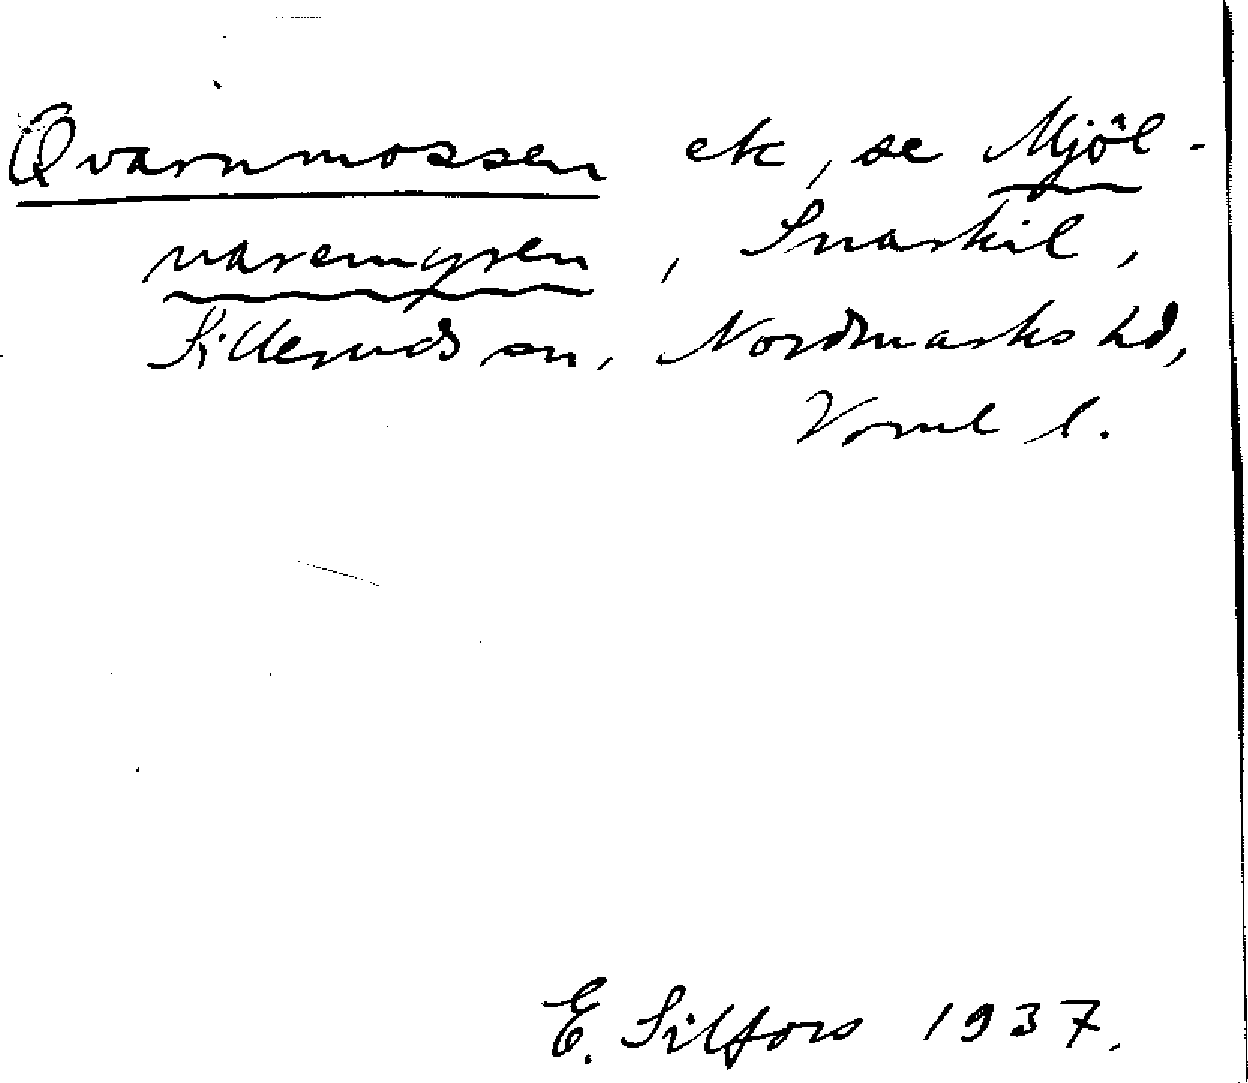 Qvarnmossen etc, se Mjöl-
naremyren, Snarkil,
Silleruds sn, Nordmarks hd,
Vrml l.
E. Silfors 1937.